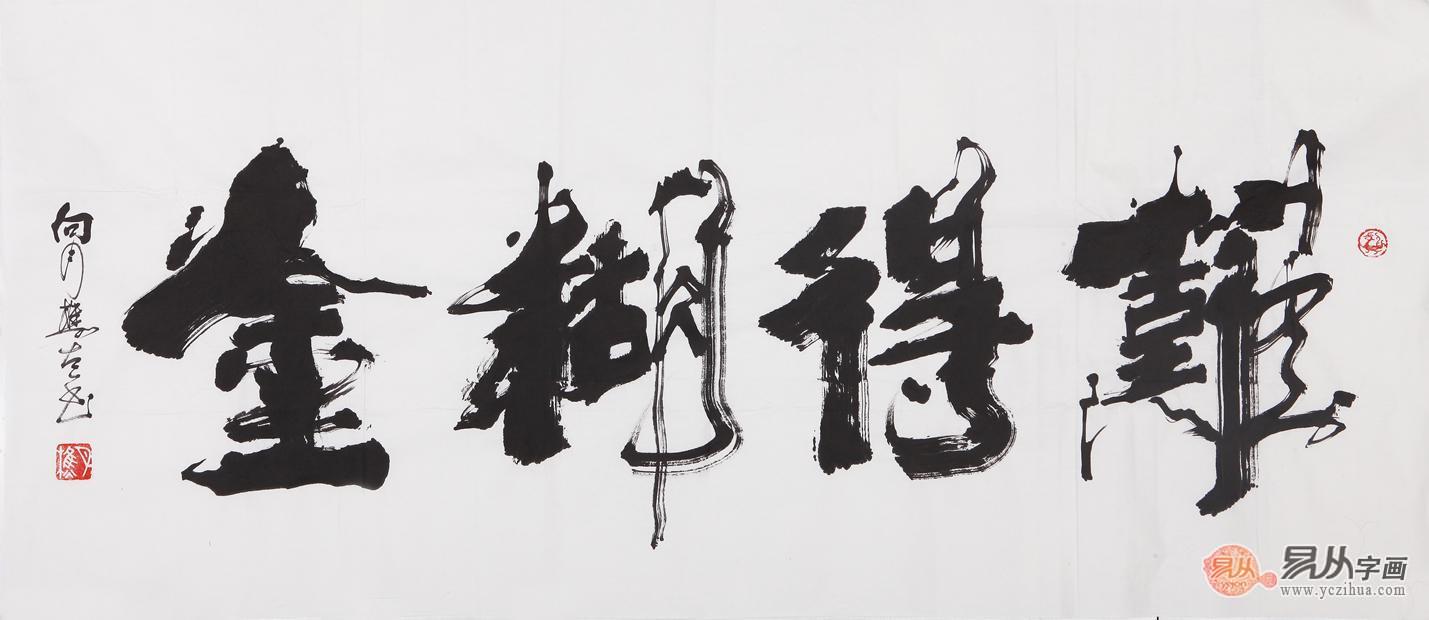 難得糊塗
向月樵书
易从字画
www.yczihua.com